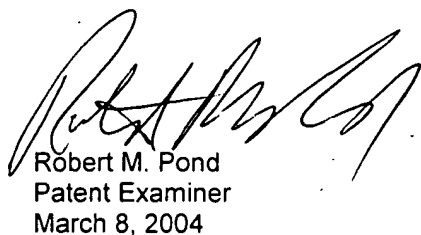 Robert M. Pond
Patent Examiner
March 8, 2004